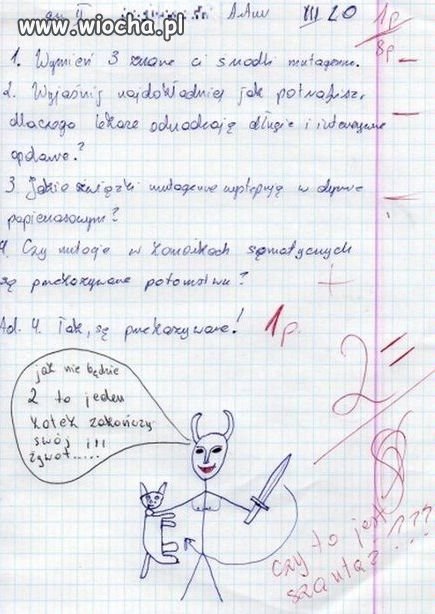 www.wiocha.pl
III 20
1p
8p
1. Wymień 3 znane ci środki mutagenne.
2. Wyjaśnij najdokładniej jak potrafisz,
dlaczego lekarze odradzają długie i intensywne
opalanie?
3. Jakie związki mutagenne występują w dymie
papierosowym?
4. Czy mutacje w komórkach somatycznych
są przekazywane potomstwu?
Ad. 4. Tak, są przekazywane! 1p.
2=
jak nie będzie
2 to jeden
kotek zakończy
swój !!!
żywot.....
czy to jest
szantaż???...